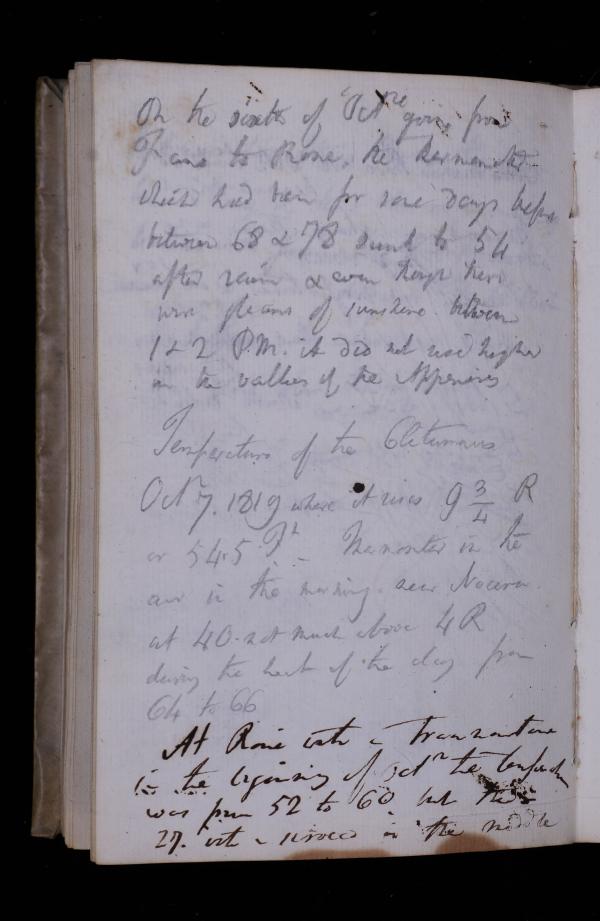 On the sixth of Octre going from
Fano to Rome, the thermometer
which had been for some days before
between 68 & 78 sunk to 54
after rain & even though there
were gleams of sunshine between
1 & 2 P.M. it did not rise higher
in the vallies of the Appenines
Temperature of the Clitumnus
Octr 7. 1819 where it rises 9 3/4 R
or 54.5 Ft - Thermometer in the
air in the morning near Nocera
at 40 not much above 4 R
during the heat of the day from
64 to 66
At Rome with a tramontane
in the beginning of Octr the temperature
was from 52 to 60 but the
27. with a siroco in the middle